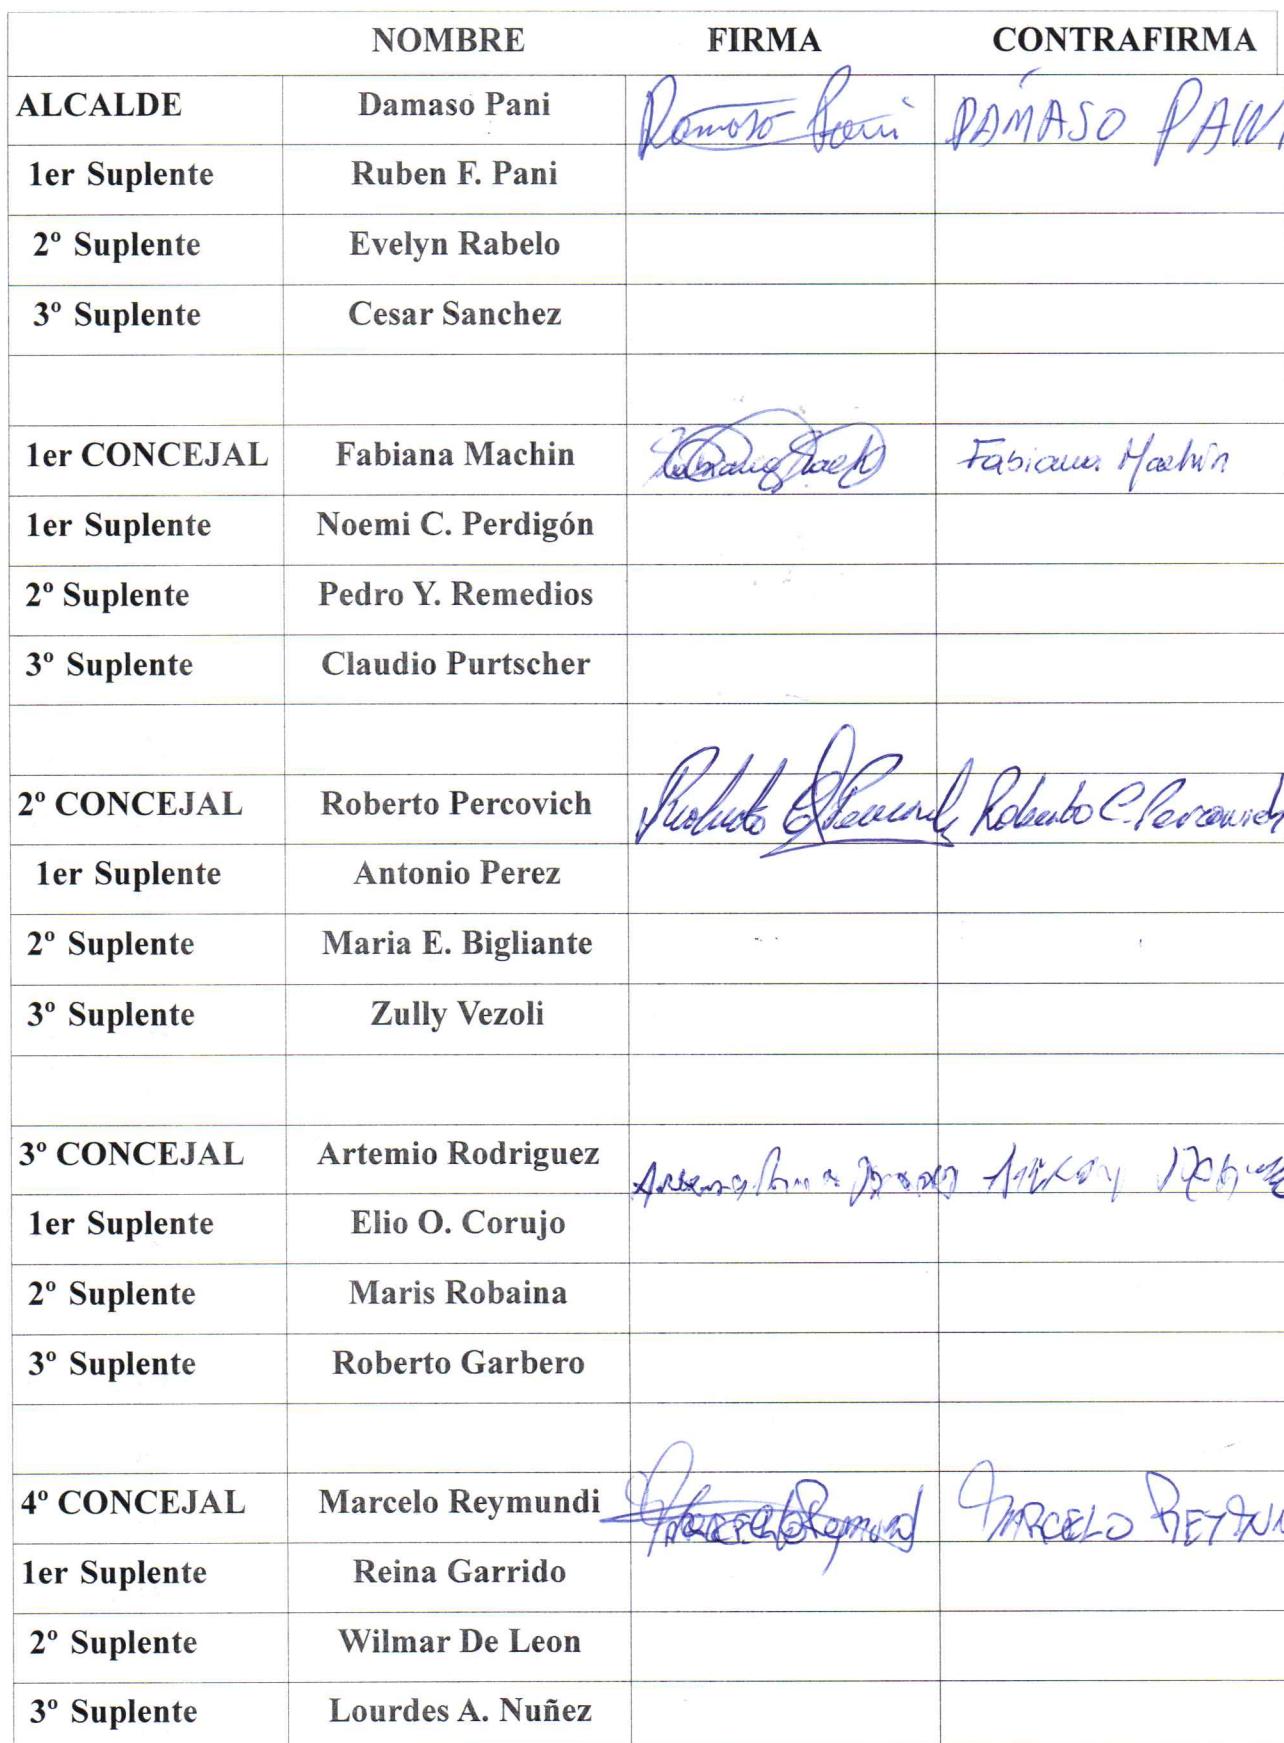 NOMBRE FIRMA CONTRAFIRMA
ALCALDE Damaso Pani Damaso Pani DAMASO PANI
1er Suplente Ruben F. Pani
2º Suplente Evelyn Rabelo
3º Suplente Cesar Sanchez
1er CONCEJAL Fabiana Machin Fabiana Machin
1er Suplente Noemi C. Perdigón
2º Suplente Pedro Y. Remedios
3º Suplente Claudio Purtscher
2º CONCEJAL Roberto Percovich Roberto Roberto C. Percovich
1er Suplente Antonio Perez
2º Suplente Maria E. Bigliante
3º Suplente Zully Vezoli
3º CONCEJAL Artemio Rodriguez
1er Suplente Elio O. Corujo
2º Suplente Maris Robaina
3º Suplente Roberto Garbero
4º CONCEJAL Marcelo Reymundi MARCELO
1er Suplente Reina Garrido
2º Suplente Wilmar De Leon
3º Suplente Lourdes A. Nuñez